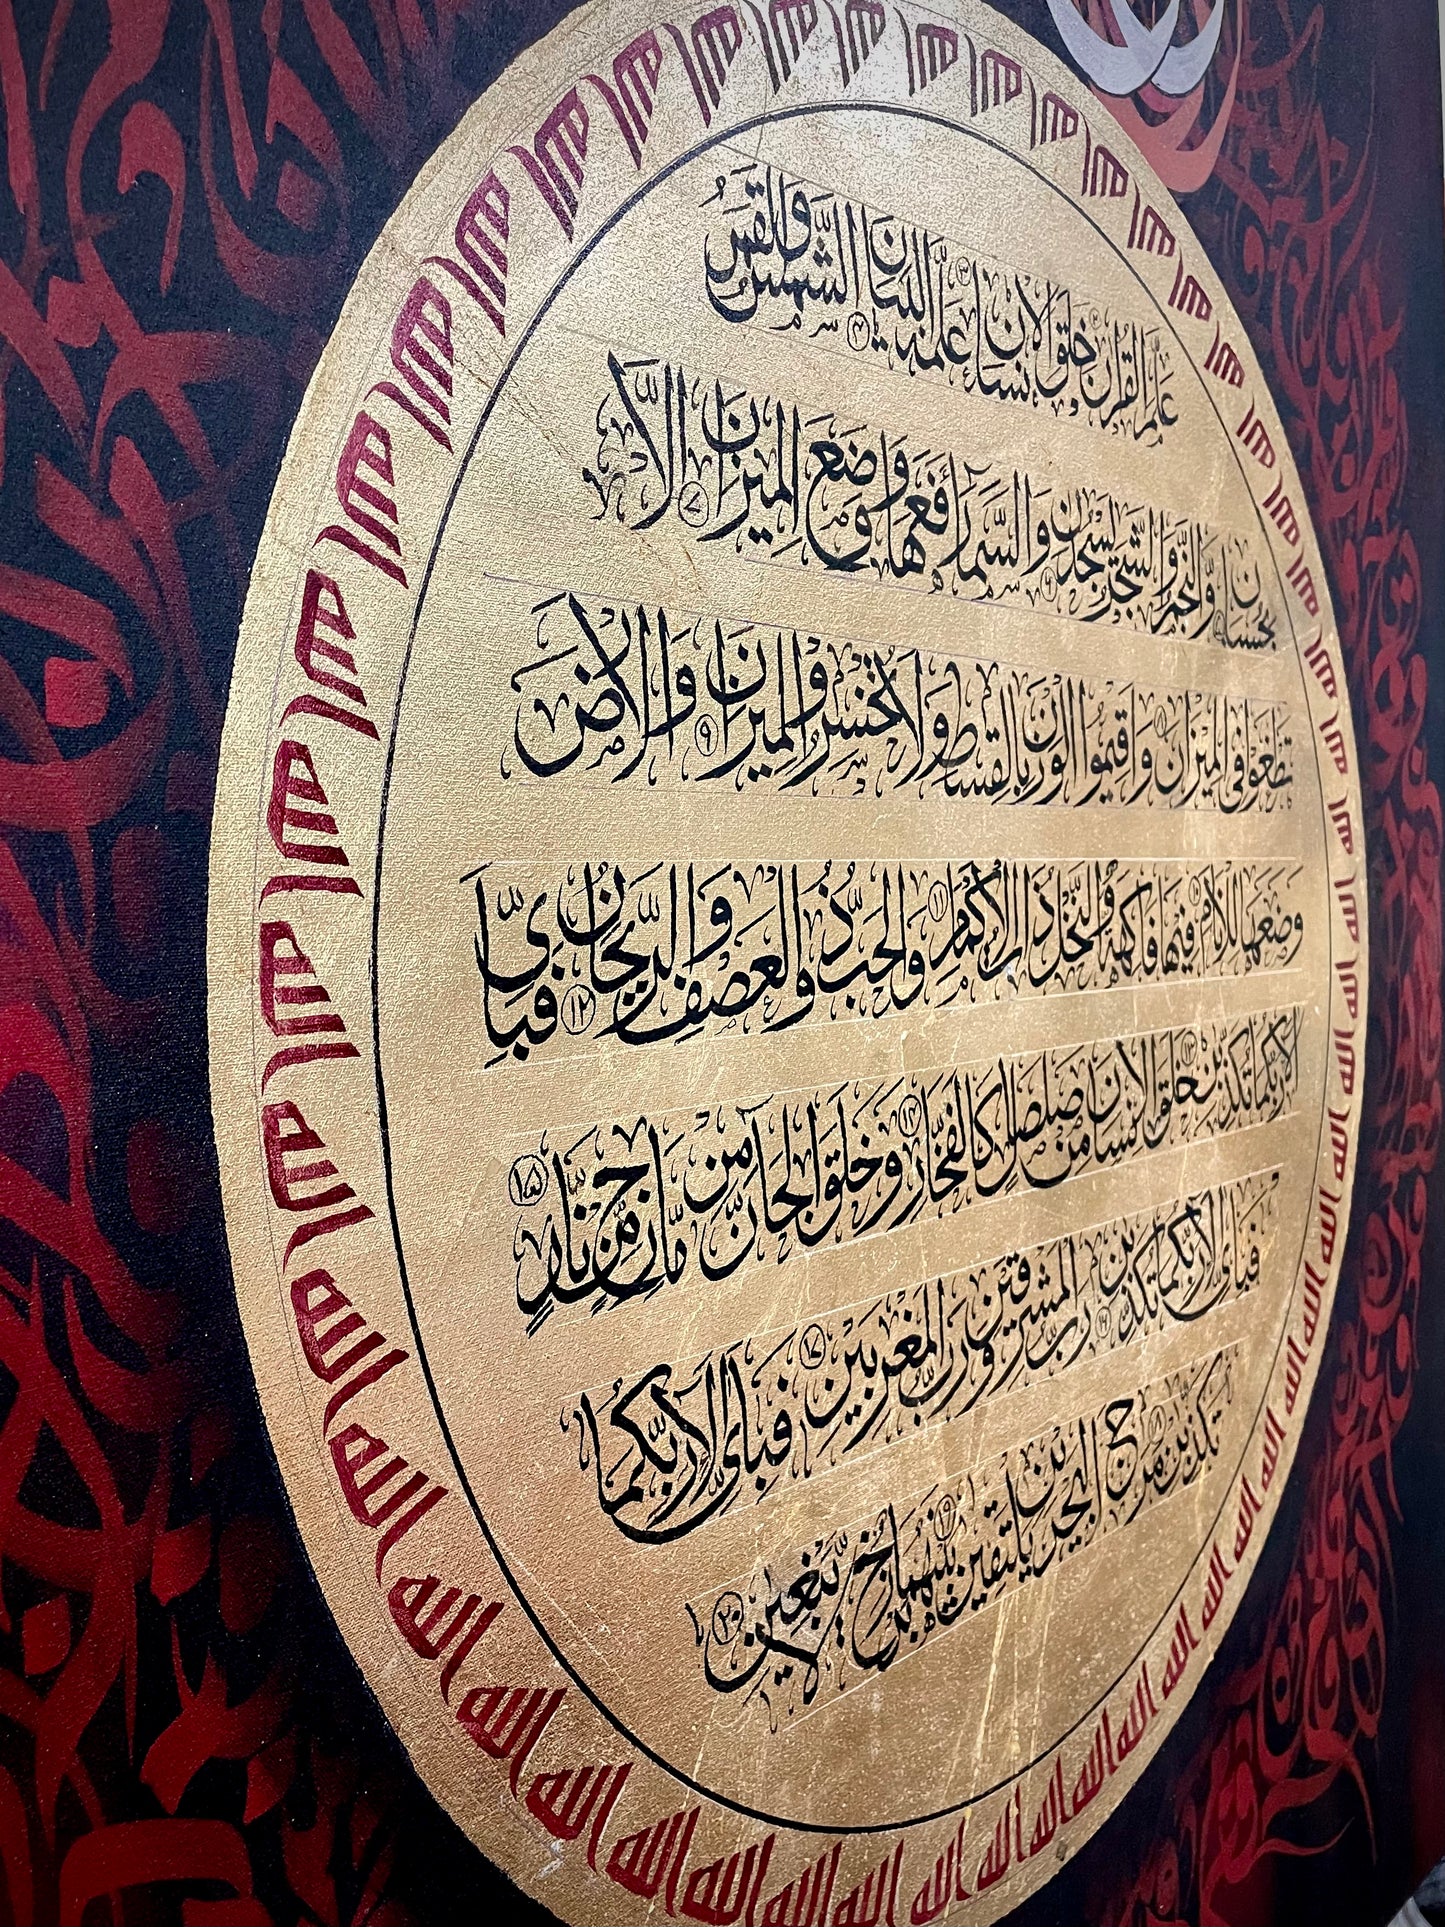 علم القرآن ٢ خلق الانسان ٣ علمه البيان ٤ الشمس والقمر
بحسبان ٥ والنجم والشجر يسجدان ٦ والسماء رفعها ووضع الميزان ٧ الا
تطغوا فى الميزان ٨ واقيموا الوزن بالقسط ولا تخسروا الميزان ٩ والارض
وضعها للانام ١٠ فيها فاكهة والنخل ذات الاكمام ١١ والحب ذو العصف والريحان ١٢ فباى
الاء ربكما تكذبن ١٣ خلق الانسان من صلصل كالفخار ١٤ وخلق الجان من مارج من نار ١٥
فباى الاء ربكما تكذبن ١٦ رب المشرقين ورب المغربين ١٧ فباى الاء ربكما
تكذبن ١٨ مرج البحرين يلتقين ١٩ بينهما برزخ لا يبغين ٢٠
الله الله الله الله الله الله الله الله الله الله الله الله الله الله الله الله الله الله الله الله